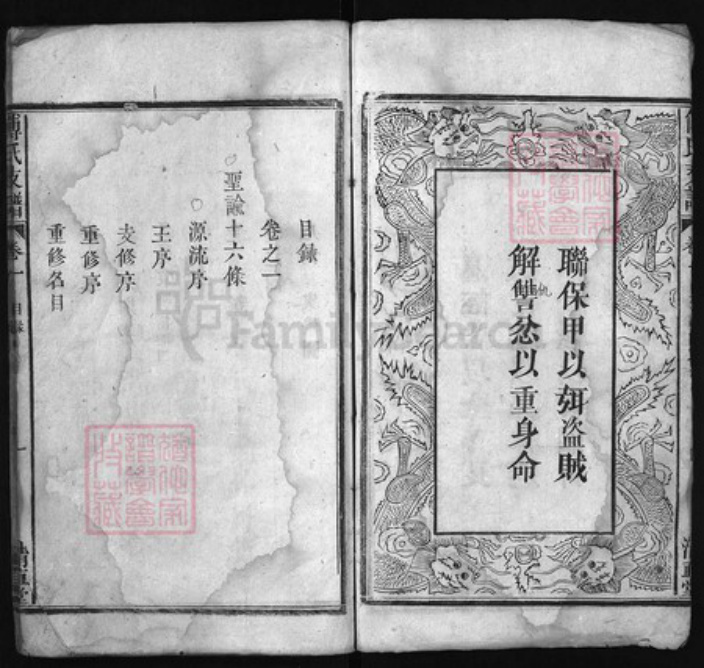 聯保甲以弭盗賊
解讐忿以重身命
仇
目錄
卷之一
聖諭十六條
源流序
王序
支修序
重修序
重修名目
傅氏支譜
卷一
目錄
一
清直堂
FamilySearch